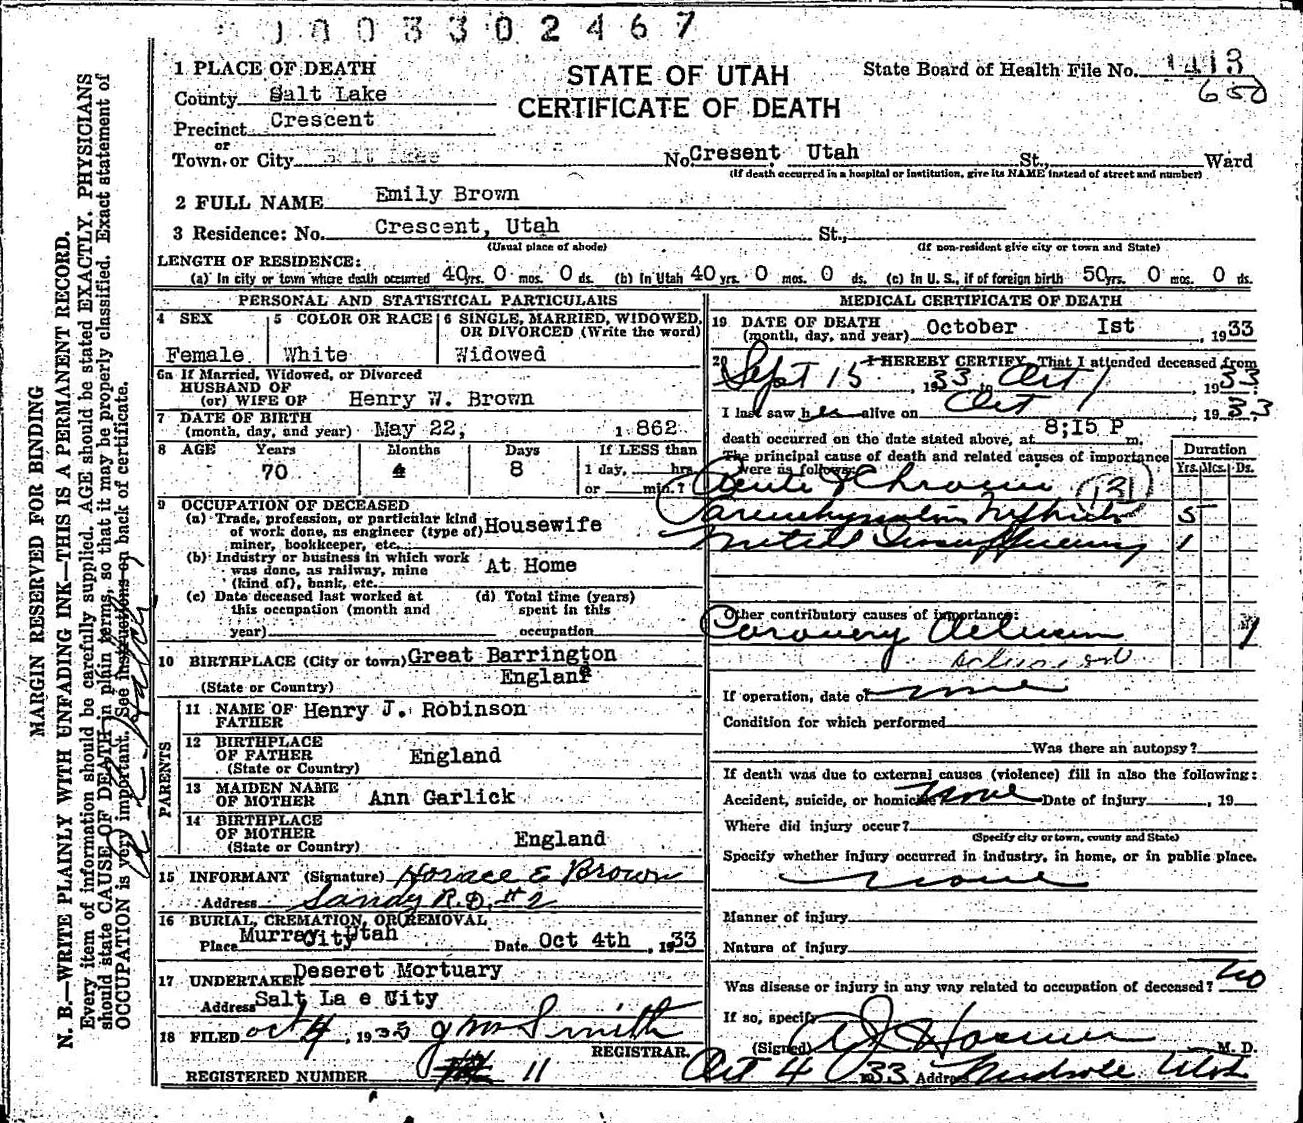 1003302467
1 PLACE OF DEATH
STATE OF UTAH
CERTIFICATE OF DEATH
State Board of Health File No. 1413
650
County Salt Lake
Precinct Crescent
or
Town or City Salt Lake No. Cresent Utah St., Ward
(If death occurred in a hospital or institution, give its NAME instead of street and number)
2 FULL NAME Emily Brown
3 Residence: No. Crescent, Utah St.,
(Usual place of abode) (If non-resident give city or town and State)
LENGTH OF RESIDENCE:
(a) In city or town where death occurred 40 yrs. 0 mos. 0 ds. (b) In Utah 40 yrs. 0 mos. 0 ds. (c) In U. S., if of foreign birth 50 yrs. 0 mos. 0 ds.
PERSONAL AND STATISTICAL PARTICULARS
4 SEX 5 COLOR OR RACE 6 SINGLE, MARRIED, WIDOWED,
OR DIVORCED (Write the word)
Female White Widowed
6a If Married, Widowed, or Divorced
HUSBAND OF
(or) WIFE OF Henry W. Brown
7 DATE OF BIRTH
(month, day, and year) May 22, 1862
8 AGE Years Months Days If LESS than
70 4 8 1 day, hrs.
or min.?
9 OCCUPATION OF DECEASED
(a) Trade, profession, or particular kind
of work done, as engineer (type of) Housewife
miner, bookkeeper, etc.
(b) Industry or business in which work
was done, as railway, mine At Home
(kind of), bank, etc.
(c) Date deceased last worked at (d) Total time (years)
this occupation (month and spent in this
year) occupation
10 BIRTHPLACE (City or town) Great Barrington
(State or Country) England
PARENTS
11 NAME OF Henry J. Robinson
FATHER
12 BIRTHPLACE
OF FATHER England
(State or Country)
13 MAIDEN NAME
OF MOTHER Ann Garlick
14 BIRTHPLACE
OF MOTHER England
(State or Country)
15 INFORMANT (Signature) Horace E Brown
Address Sandy R.D. #2
16 BURIAL, CREMATION, OR REMOVAL
Place Murray City Utah Date Oct 4th, 1933
17 UNDERTAKER Deseret Mortuary
Address Salt La e City
18 FILED Oct 4, 1933 Smith
REGISTRAR.
REGISTERED NUMBER 11
MEDICAL CERTIFICATE OF DEATH
19 DATE OF DEATH
(month, day, and year) October Ist, 1933
20 I HEREBY CERTIFY, That I attended deceased from
Sept 15, 1933 to Oct 1, 1933
I last saw her alive on Oct 1, 1933
death occurred on the date stated above, at 8;15 P m.
The principal cause of death and related causes of importance
were as follows: Duration
Yrs. Mos. Ds.
Acute & Chronic 131
Parenchymatous Nephritis 5
Mitral Insufficiency 1
Other contributory causes of importance:
Coronary Oclusion 1
oclusion
If operation, date of none
Condition for which performed
Was there an autopsy?
If death was due to external causes (violence) fill in also the following:
Accident, suicide, or homicide none Date of injury, 19
Where did injury occur?
(Specify city or town, county and State)
Specify whether injury occurred in industry, in home, or in public place.
none
Manner of injury
Nature of injury
Was disease or injury in any way related to occupation of deceased? no
If so, specify
(Signed) M. D.
Oct 4 1933 Address Midvale Utah
MARGIN RESERVED FOR BINDING
N. B.—WRITE PLAINLY WITH UNFADING INK—THIS IS A PERMANENT RECORD.
Every item of information should be carefully supplied. AGE should be stated EXACTLY. PHYSICIANS
should state CAUSE OF DEATH in plain terms, so that it may be properly classified. Exact statement of
OCCUPATION is very important. See instructions on back of certificate.